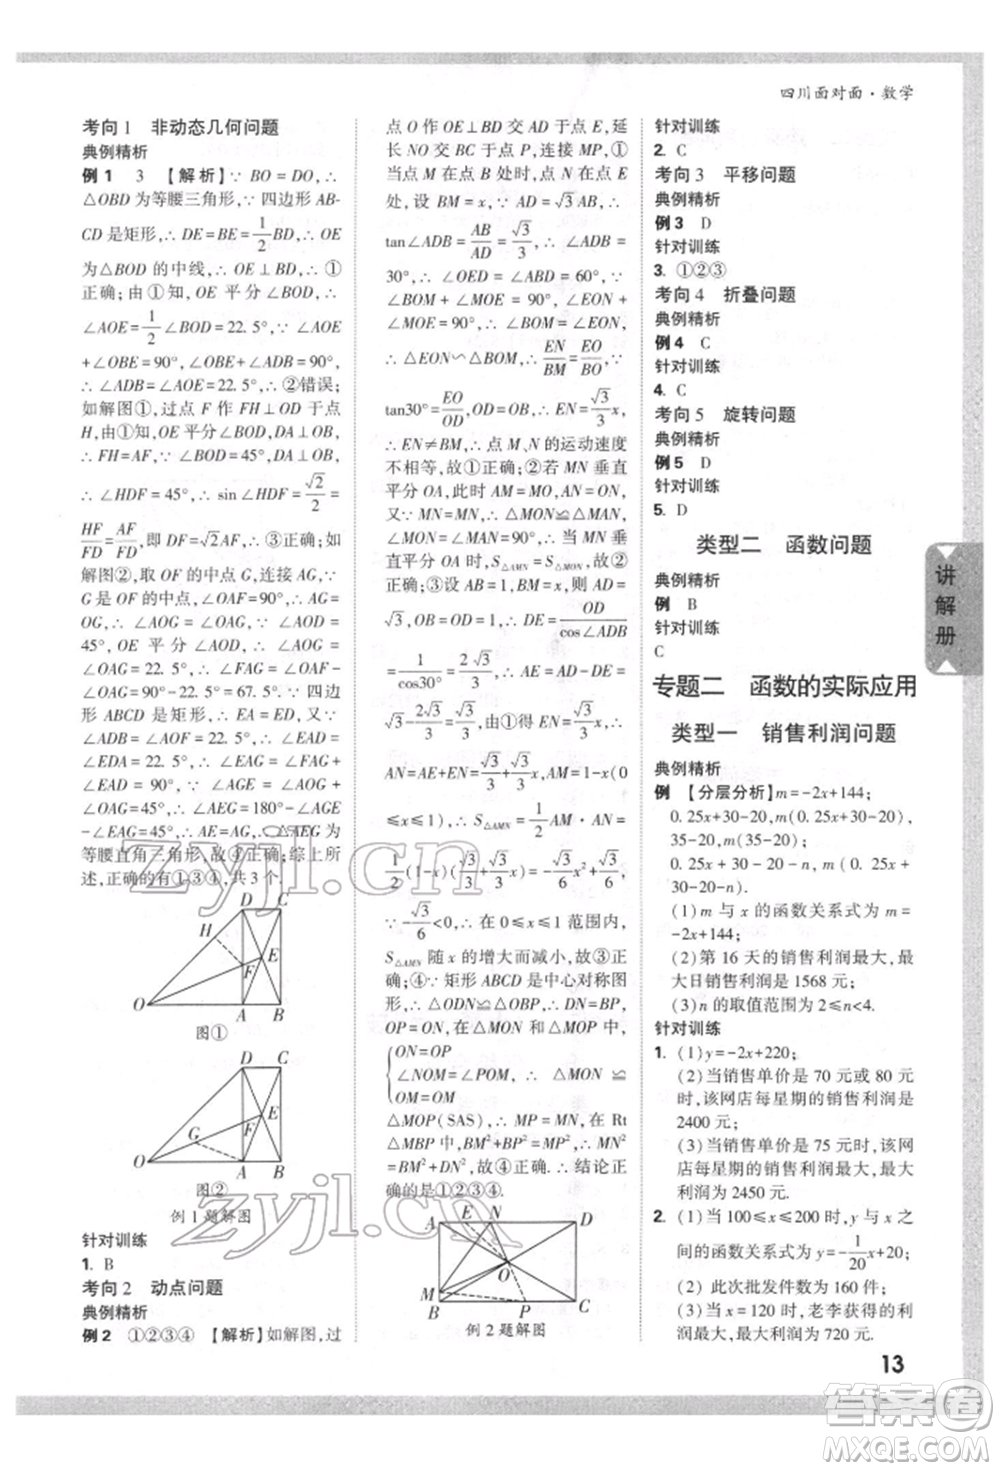 四川面对面·数学
考向1 非动态几何问题
典例精析
例1 3 【解析】∵BO=DO,∴
△OBD为等腰三角形,∵四边形AB-
CD是矩形,∴DE=BE=1/2BD,∴OE
为△BOD的中线,∴OE⊥BD,故①
正确;由①知,OE平分∠BOD,∴
∠AOE=1/2∠BOD=22.5°,∵∠AOE
+∠OBE=90°,∠ADB+∠OBE=90°,
∴∠ADB=∠AOE=22.5°,故②错误;
如解图①,过点F作FH⊥OD于点
H,由①知,OE平分∠BOD,DA⊥OB,
∴FH=AF,∵∠BOD=45°,DA⊥OB,
∴∠HDF=45°,∴sin∠HDF=√2/2=
HF/FD=AF/FD,即DF=√2AF,故③正确;如
解图②,取OF的中点G,连接AG,∵
G是OF的中点,∠OAF=90°,∴AG=
OG,∴∠AOG=∠OAG,∵∠AOD=
45°,OE平分∠AOD,∴∠AOG=
∠OAG=22.5°,∴∠FAG=∠OAF-
∠OAG=67.5°,∠ADB=22.5°∵四边
形ABCD是矩形,∴EA=ED,∴∠EAD=
∠EDA=22.5°,∵∠EAG=∠EAD+
∠FAG=90°,∵∠AGE=∠AOG+
∠OAG=45°,∴∠AEG=180°-∠AGE
-∠EAG=45°,∴AE=AG,∴△AEG为
等腰直角三角形,故④正确;综上所
述,正确的有①③④,共3个.
D C
H
E
F
O A B
图①
D C
E
G F
O A B
图②
例1题解图
针对训练
1. B
考向2 动点问题
典例精析
例2 ①②③④ 【解析】如解图,过
点O作OE⊥BD交AD于点E,延
长NO交BC于点P,连接MP,①
当点M在点B处时,点N在点E
处,设∠BOM=∠EON,∵AD=√3AB,∴
tan∠ADB=AB/AD=√3/3,∴∠ADB=
30°,∴∠OED=∠ABD=60°,∵
∠BOM+∠MOE=90°,∠EON+
∠MOE=90°,∴∠BOM=∠EON,
∴△EON∽△BOM,∴EN/BM=EO/BO,∵
tan30°=EO/OD,OD=OB,∴EN=√3/3x,
∴EN≠BM,∴点M、N的运动速度
不相等,故①正确;②若MN垂直
平分OA,此时AM=MO,AN=NO,
又∵MN=MN,∴△MNO≌△MAN,
∴∠MON=∠MAN=90°;③当M
经过点B时,此时S△AMN=S△AMN,∵
设AB=1,BM=x,则BD=2,AD=
√3,OB=OD=1,∴DE=OD/cos∠ADB
=1/cos30°=2√3/3,∴AE=AD-DE=
√3-2√3/3=√3/3,由①得EN=√3/3x,∴
AN=AE+EN=√3/3+√3/3x,AM=1-x(0
≤x≤1),∴S△AMN=1/2AM·AN=
1/2(1-x)(√3/3+√3/3x)=√3/6-√3/6x²,
∵-√3/6<0,∴在0≤x≤1范围内,
S△AMN随x的增大而减小,故③正确;
④∵矩形ABCD是中心对称图
形,∴△ODN≌△OBP,∴DN=BP,
OP=ON,在△MON和△MOP中,
ON=OP
∠NOM=∠POM,∴△MON≌
OM=OM
△MOP(SAS),∴MP=MN,在Rt
△MBP中,BM²+BP²=MP²,∴BM²
+DN²=MN²,故④正确.∴结论正
确的是①②③④.
A E N D
O
M
B P C
例2题解图
针对训练
2. C
考向3 平移问题
典例精析
例3 D
针对训练
3. ①②③
考向4 折叠问题
典例精析
例4 C
针对训练
4. C
考向5 旋转问题
典例精析
例5 D
针对训练
5. D
类型二 函数问题
典例精析
例 B
针对训练
C
专题二 函数的实际应用
类型一 销售利润问题
典例精析
例 【分层分析】m=-2x+144;
0.25x+30-20,m(0.25x+30-20),
35-20,m(35-20);
0.25x+30-20-n,m(0.25x+
30-20-n).
(1)m与x的函数关系式为m=
-2x+144;
(2)第16天的销售利润最大,最
大日销售利润是1568元;
(3)n的取值范围为2≤n<4.
针对训练
1. (1)y=-2x+220;
(2)当销售单价是70元或80元
时,该网店每星期的销售利润是
2400元;
(3)当销售单价是75元时,该网
店每星期的销售利润最大,最大利
润为2450元.
2. (1)当100≤x≤200时,y与x之
间的函数关系式为y=-1/20x+20;
(2)此次批发件数为160件;
(3)当x=120时,老李获得的利
润最大,最大利润为720元.
讲解册
13
zyjl.cn
zyjl.cn
答案卷
MXQE.COM